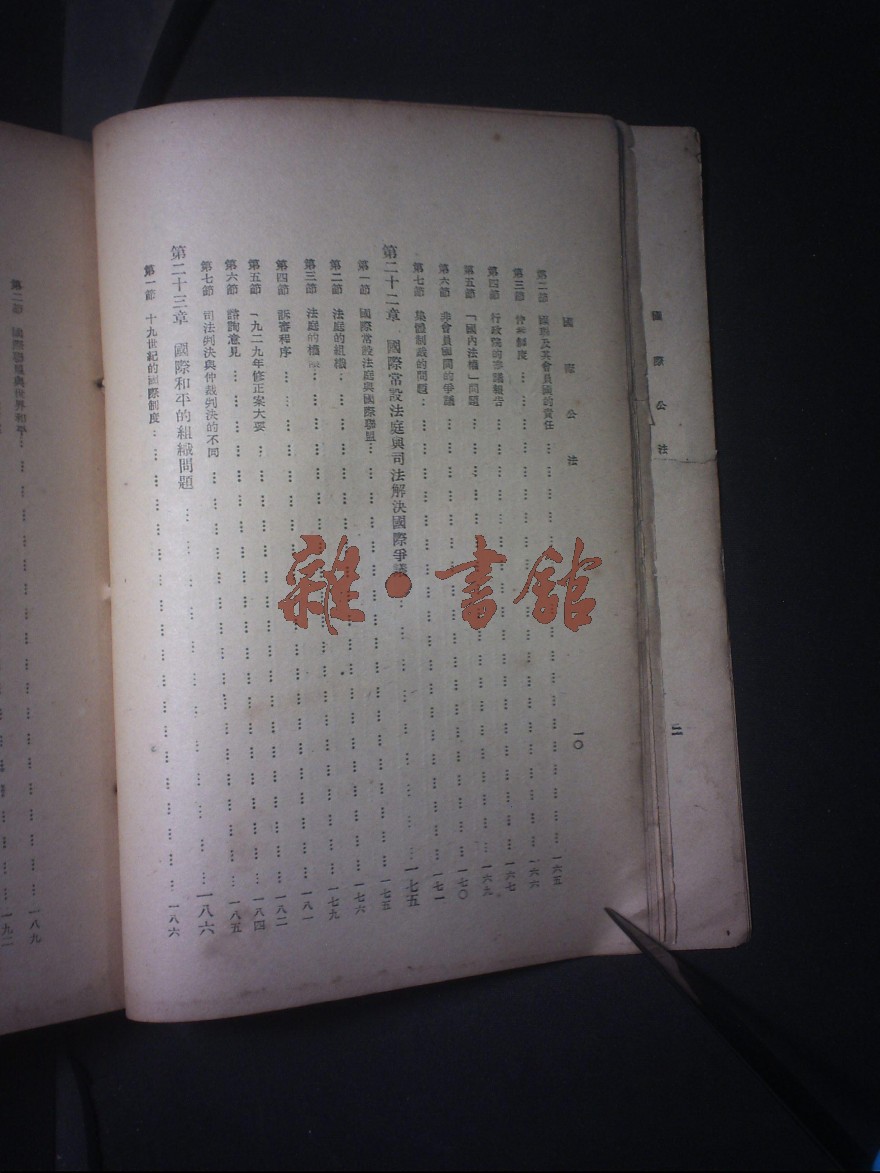 國際公法
二
國際公法
一〇
第二節 國聯及其會員國的責任…一六五
第三節 仲裁制度…一六六
第四節 行政院的爭議報告…一六七
第五節 「國內法權」問題…一六九
第六節 非會員國間的爭議…一七〇
第七節 集體制裁的問題…一七一
第二十二章 國際常設法庭與司法解決國際爭議…一七五
第一節 國際常設法庭與國際聯盟…一七五
第二節 法庭的組織…一七六
第三節 法庭的權限…一七九
第四節 訴審程序…一八一
第五節 一九二九年修正案大要…一八二
第六節 諮詢意見…一八四
第七節 司法判決與仲裁判決的不同…一八五
第二十三章 國際和平的組織問題…一八六
第一節 十九世紀的國際制度…一八六
第二節 國際聯盟與世界和平…一八九
一九二
雜·書館